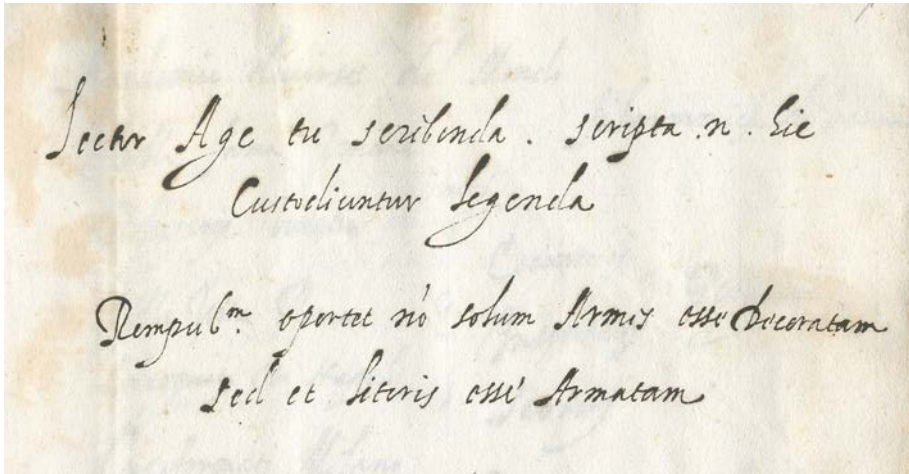 Lector Age tu scribenda . scripta .n. hic
Custodiuntur legenda
Rempub.m oportet nō solum Armis esse decoratam
sed et literis esse Armatam